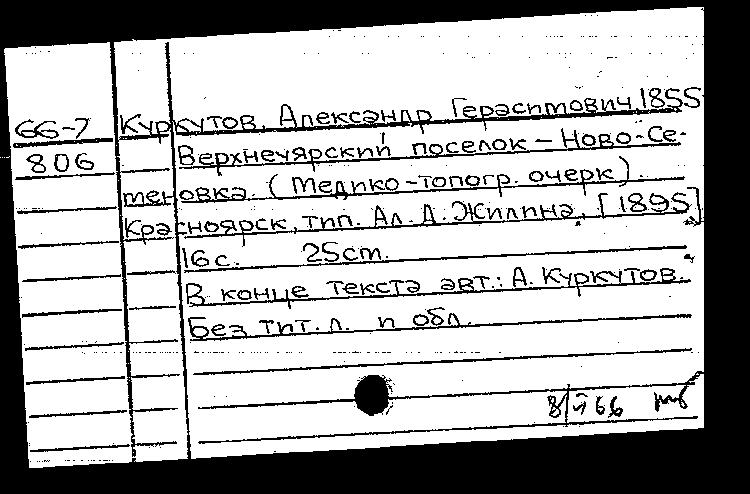 66-7 Куркутов, Александр Герасимович, 1855-
806 Верхнечярский поселок – Ново-Се-
меновка. (Медико-топогр. очерк).
Красноярск, тип. Ал. Д. Жилина, [1895]
16 с. 25 cm.
В конце текста авт.: А. Куркутов.
Без тит. л. и обл.